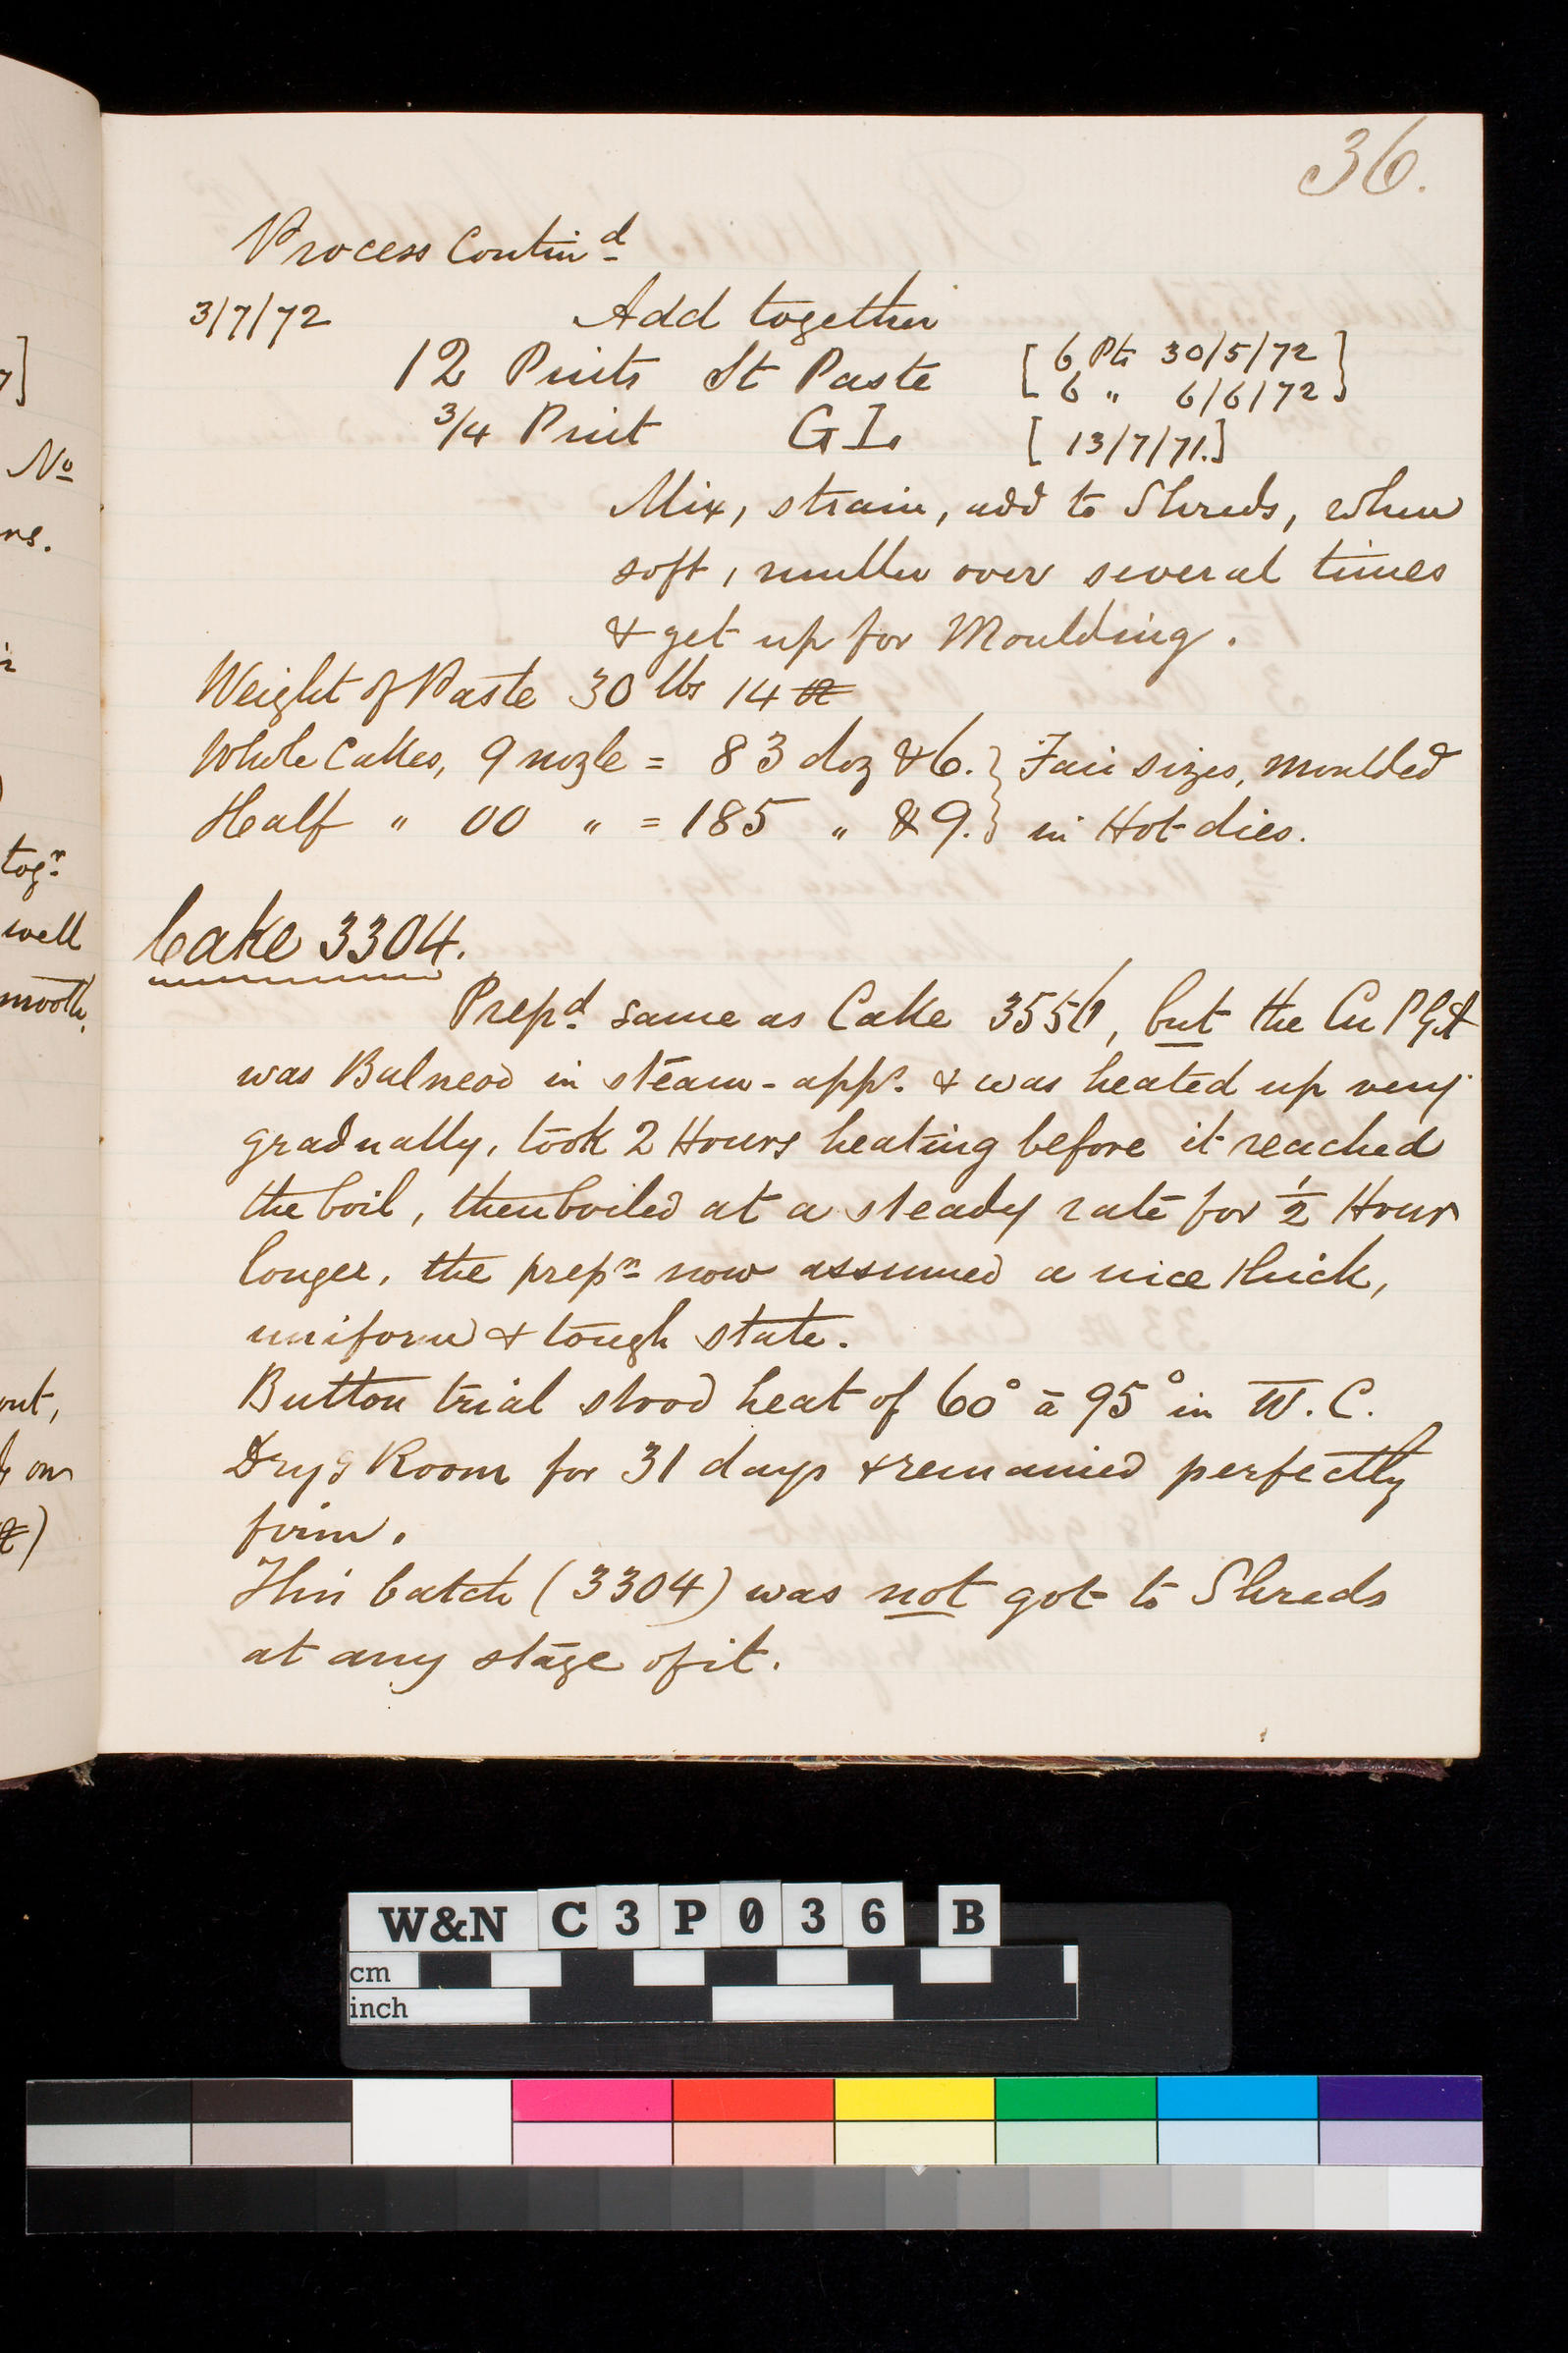 36.
Process Contind
3/7/72 Add together
12 Pints St Paste [6 Pts 30/5/72
6 " 6/6/72]
3/4 Pint GI. [13/7/71.]
Mix, strain, add to Shreds, when
soft, muller over several times
& get up for Moulding.
Weight of Paste 30 lbs 14 oz
Whole Cakes, 9 nozle = 83 doz & 6. } Fair sizes, moulded
Half " 00 " = 185 " & 9. } in Hot dies.
Cake 3304.
Prepd same as Cake 3551, but the Cu
was Balneod in steam-apps. & was heated up very
gradually, took 2 Hours heating before it reached
the boil, then boiled at a steady rate for 1/2 Hour
longer, the prepn now assumed a nice thick,
uniform & tough state.
Button trial stood heat of 60° à 95° in W. C.
Dryg Room for 31 days & remained perfectly
firm.
This batch (3304) was not got to Shreds
at any stage of it.
7]
No
rs.
togr
well
smooth,
out,
on
W&N C3P036 B
cm
inch